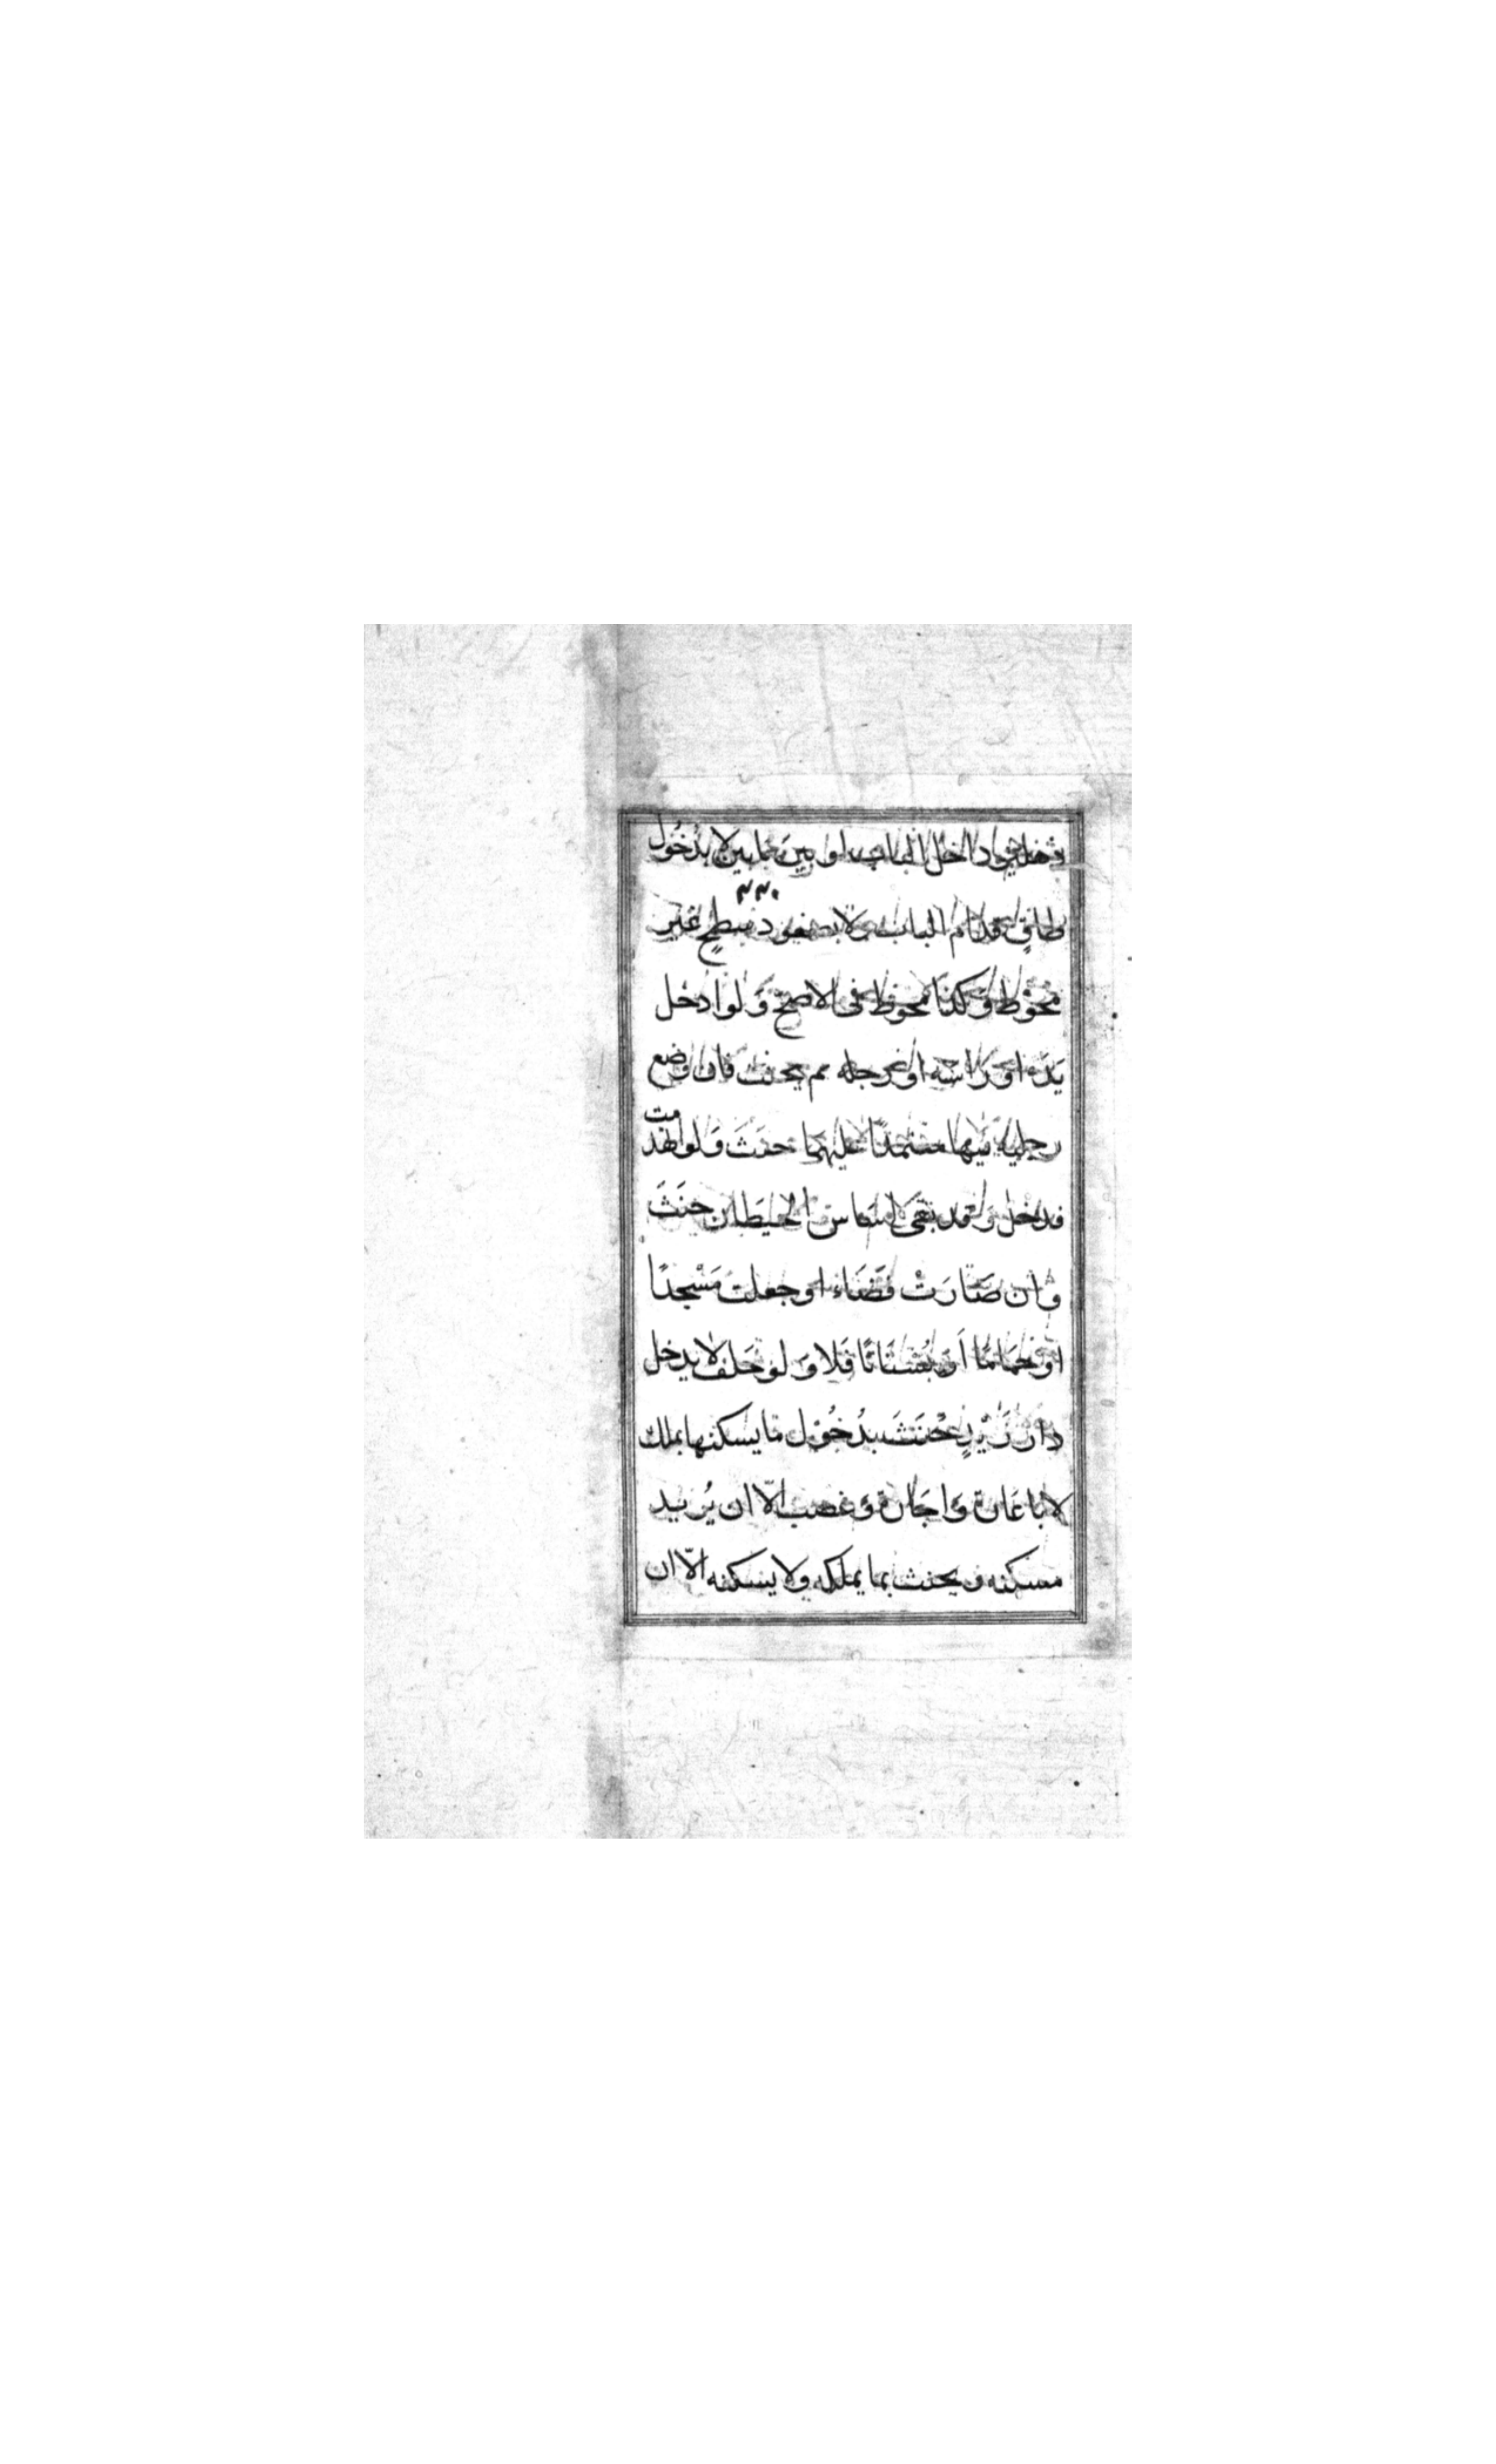 دهليز داخل الباب او بين بابين لا بدُخُول
طاقٍ قدام الباب ولا بصعود سطحٍ غير
محوّط وكذا محوّط فى الاصحّ وَلو ادخل
يَدَه او رَاسَه او رجله لم يحنث فان وضع
رجليه فيها معتمدًا عليهما حنثَ وَلو انهدمت
فدخل وَقد بقى اسَاس الحيطان حنَثَ
وان صَارَتْ فضَاء او جعلت مَسْجدًا
او حمَامًا اَو بُسْتَانًا فَلا وَلو حَلفَ لا يدخل
دارَ زَيْدٍ حْنَثَ بدُخُول مَا يسكنها بملك
لا باعَارة وَاجَارة وَغصب الّا ان يُريد
مسكنه ويحنث بما يملكه ولا يسكنه الّا ان